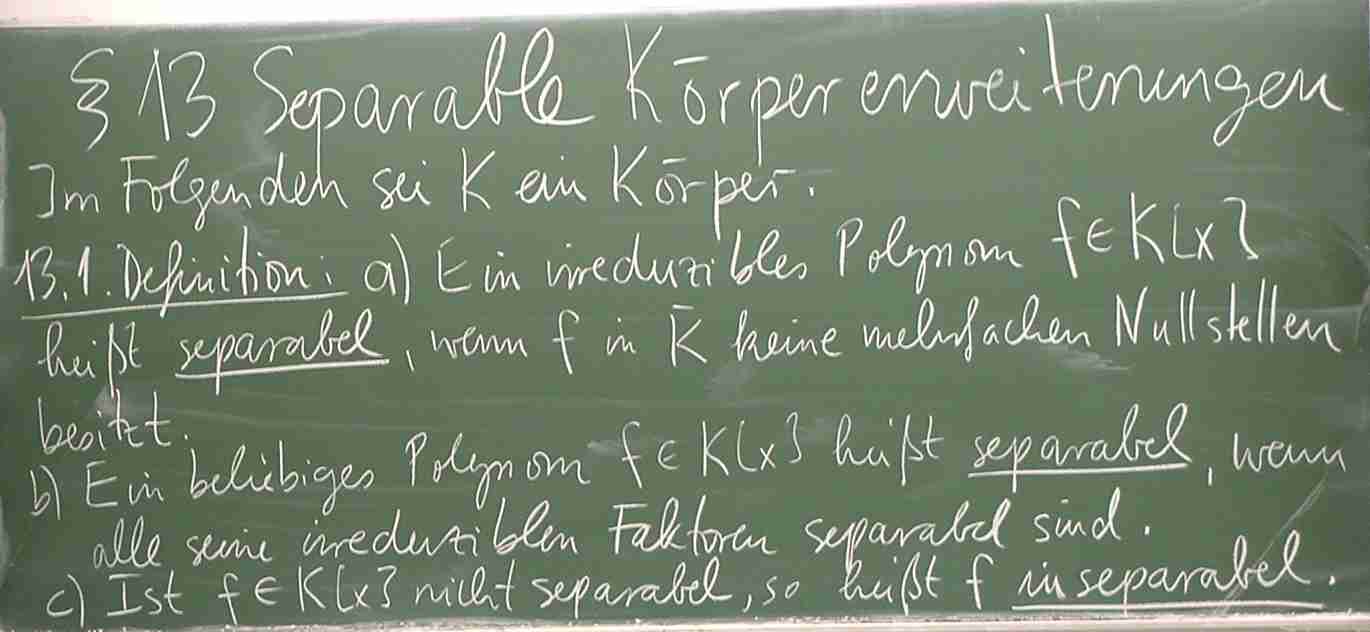 § 13 Separable Körpererweiterungen
Im Folgenden sei K ein Körper.
13.1. Definition: a) Ein irreduzibles Polynom f ∈ K[x]
heißt separabel, wenn f in K̄ keine mehrfachen Nullstellen
besitzt.
b) Ein beliebiges Polynom f ∈ K[x] heißt separabel, wenn
alle seine irreduziblen Faktoren separabel sind.
c) Ist f ∈ K[x] nicht separabel, so heißt f inseparabel.